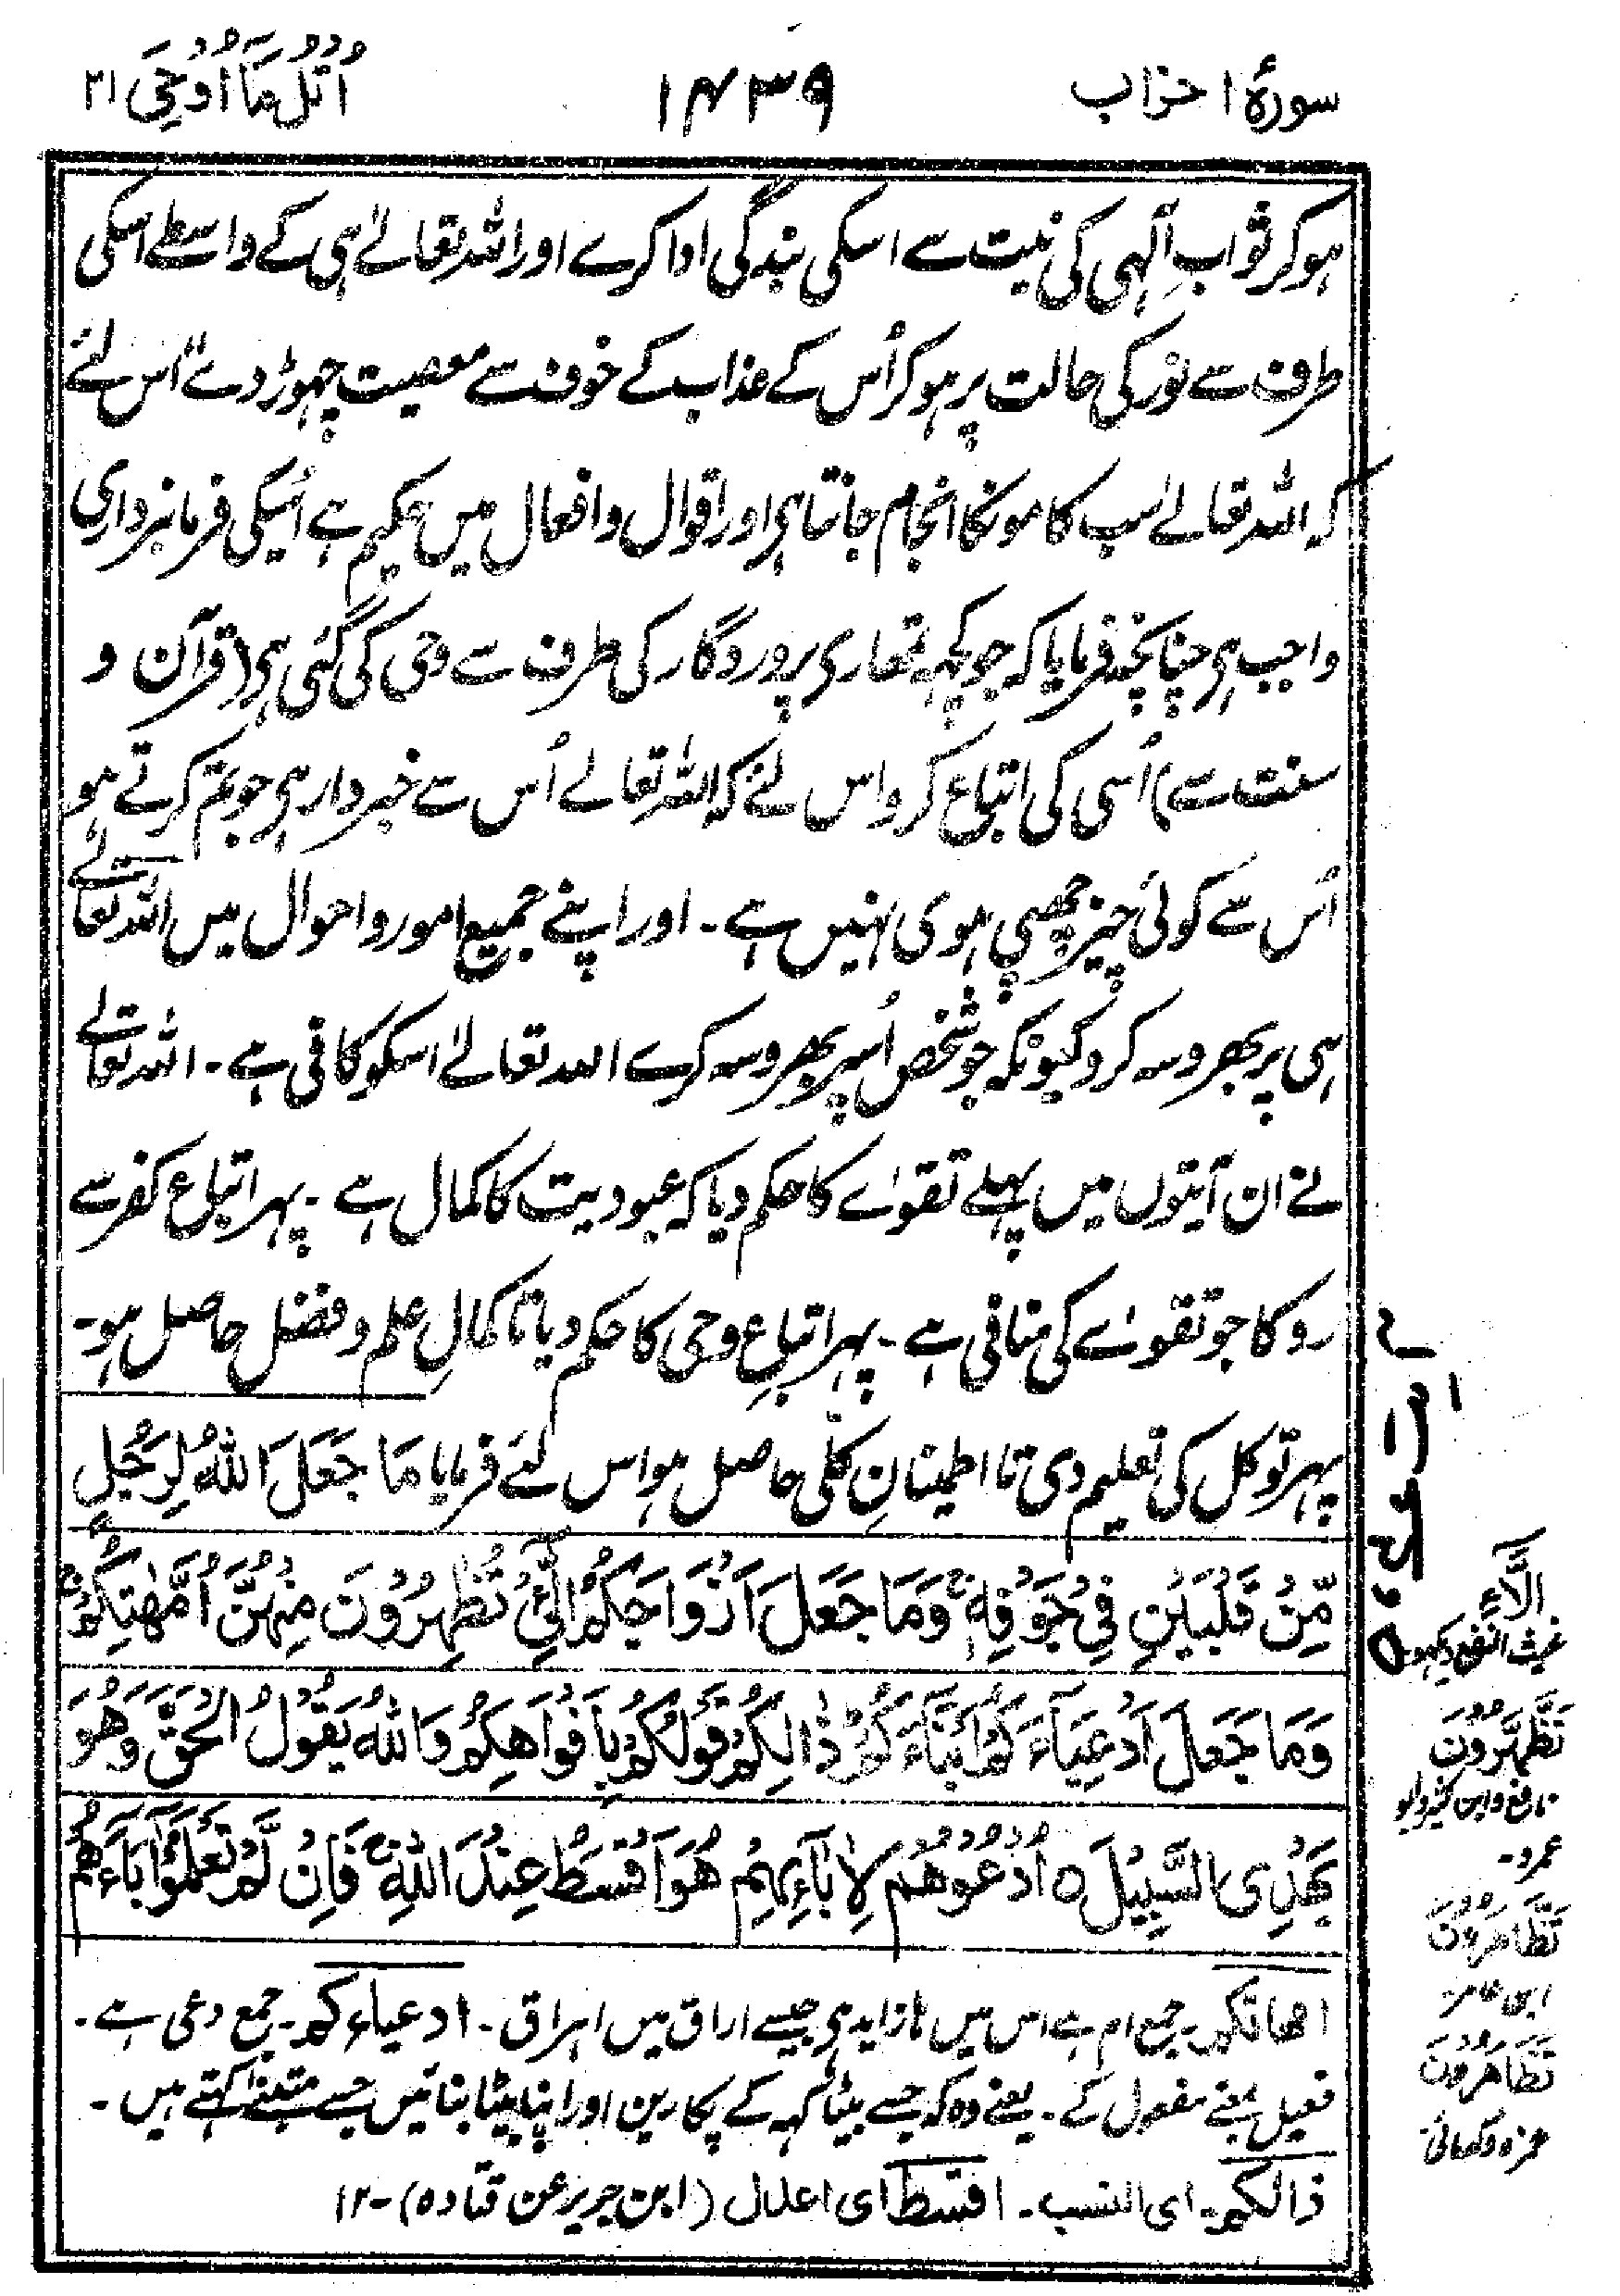 سورۂ احزاب
۱۴۳۹
اُتْلُ مَآ اُوْحِیَ ۲۱
ہوکر ثوابِ الٰہی کی نیت سے اسکی بندگی ادا کرے اور اللہ تعالےٰ ہی کے واسطے اسکی
طرف سے نور کی حالت پر ہوکر اُس کے عذاب کے خوف سے معصیت چہوڑ دے" اس لئے
کہ اللہ تعالےٰ سب کامونکا انجام جانتا ہی اور اقوال و افعال میں حکیم ہے اُسیکی فرمانبرداری
واجب ہی چنانچہ فرمایا کہ جو کچہ تمھاری پروردگار کی طرف سے وحی کی گئی ہی (قرآن و
سنت سے) اُسی کی اتباع کرو اس لئے کہ اللہ تعالےٰ اُس سے خبردار ہی جو تم کرتے ہو
اُس سے کوئی چیز چھپی ہوی نہیں ہے۔ اور اپنے جمیع امور و احوال میں اللہ تعالےٰ
ہی پر بھروسہ کرو کیونکہ جو شخص اُسپر بھروسہ کرے اللہ تعالےٰ اسکو کافی ہے۔ اللہ تعالےٰ
نے ان آیتوں میں پہلے تقوےٰ کا حکم دیا کہ عبودیت کا کمال ہے۔ پہر اتباع کفر سے
روکا جو تقوےٰ کی منافی ہے۔ پہر اتباعِ وحی کا حکم دیا تا کمالِ علم و فضل حاصل ہو۔
پہر توکل کی تعلیم دی تا اطمینانِ کلّی حاصل ہو اس لئے فرمایا مَا جَعَلَ اللّٰهُ لِرَجُلٍ
مِّنْ قَلْبَيْنِ فِيْ جَوْفِهٖ ۚ وَمَا جَعَلَ اَزْوَاجَكُمُ الّٰٓئِيْ تُظٰهِرُوْنَ مِنْهُنَّ اُمَّهٰتِكُمْ ۚ
وَمَا جَعَلَ اَدْعِيَآءَكُمْ اَبْنَآءَكُمْ ذٰالِكُمْ قَوْلُكُمْ بِاَفْوَاهِكُمْ وَاللّٰهُ يَقُوْلُ الْحَقَّ وَهُوَ
يَهْدِى السَّبِيْلَ ٥ اُدْعُوْهُمْ لِاٰبَآءِهِمْ هُوَ اَقْسَطُ عِنْدَ اللّٰهِ ۚ فَاِنْ لَّمْ تَعْلَمُوْٓا اٰبَآءَهُمْ
امھاتکم۔ جمع ام ہے اس میں ہا زاید ہی جیسے اراق میں اہراق۔ ادعیاءکم۔ جمع دعی ہے۔
فعیل بمعنے مفعول کے۔ یعنے وہ کہ جسے بیٹا کہہ کے پکارین اور اپنا بیٹا بنائیں جسے متبنےٰ کہتے ہیں۔
ذالکم۔ ای النسب۔ اقسط ای اعدل (ابن جریر عن قتادہ)۔ ۱۲
الَّآءِ
غیث النفع دیکہو
تَظَّهَّرُوْنَ
نافع و ابن کثیر و ابو
عمرو۔
تَظَّاهَرُوْنَ
ابن عامر۔
تَظَاهَرُوْنَ
حمزہ و کسائی۔